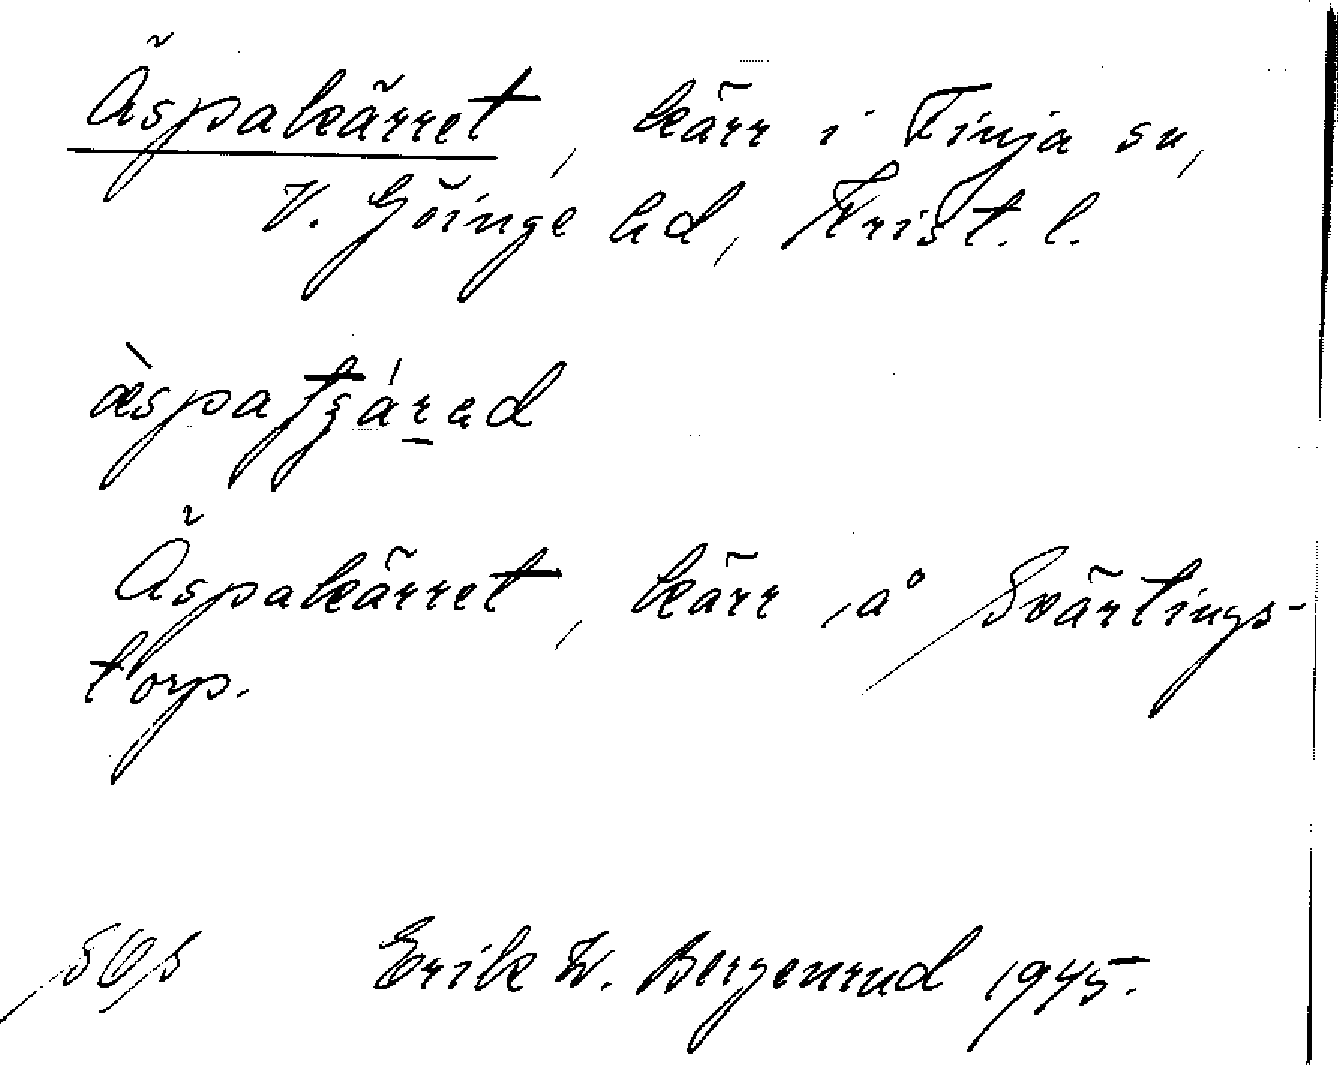 Äspakärret, kärr i Finja sn,
V. Göinge hd, Krist. l.
Äspakärret, kärr å Svärtings-
torp.
Erik W. Bergenrud 1945.